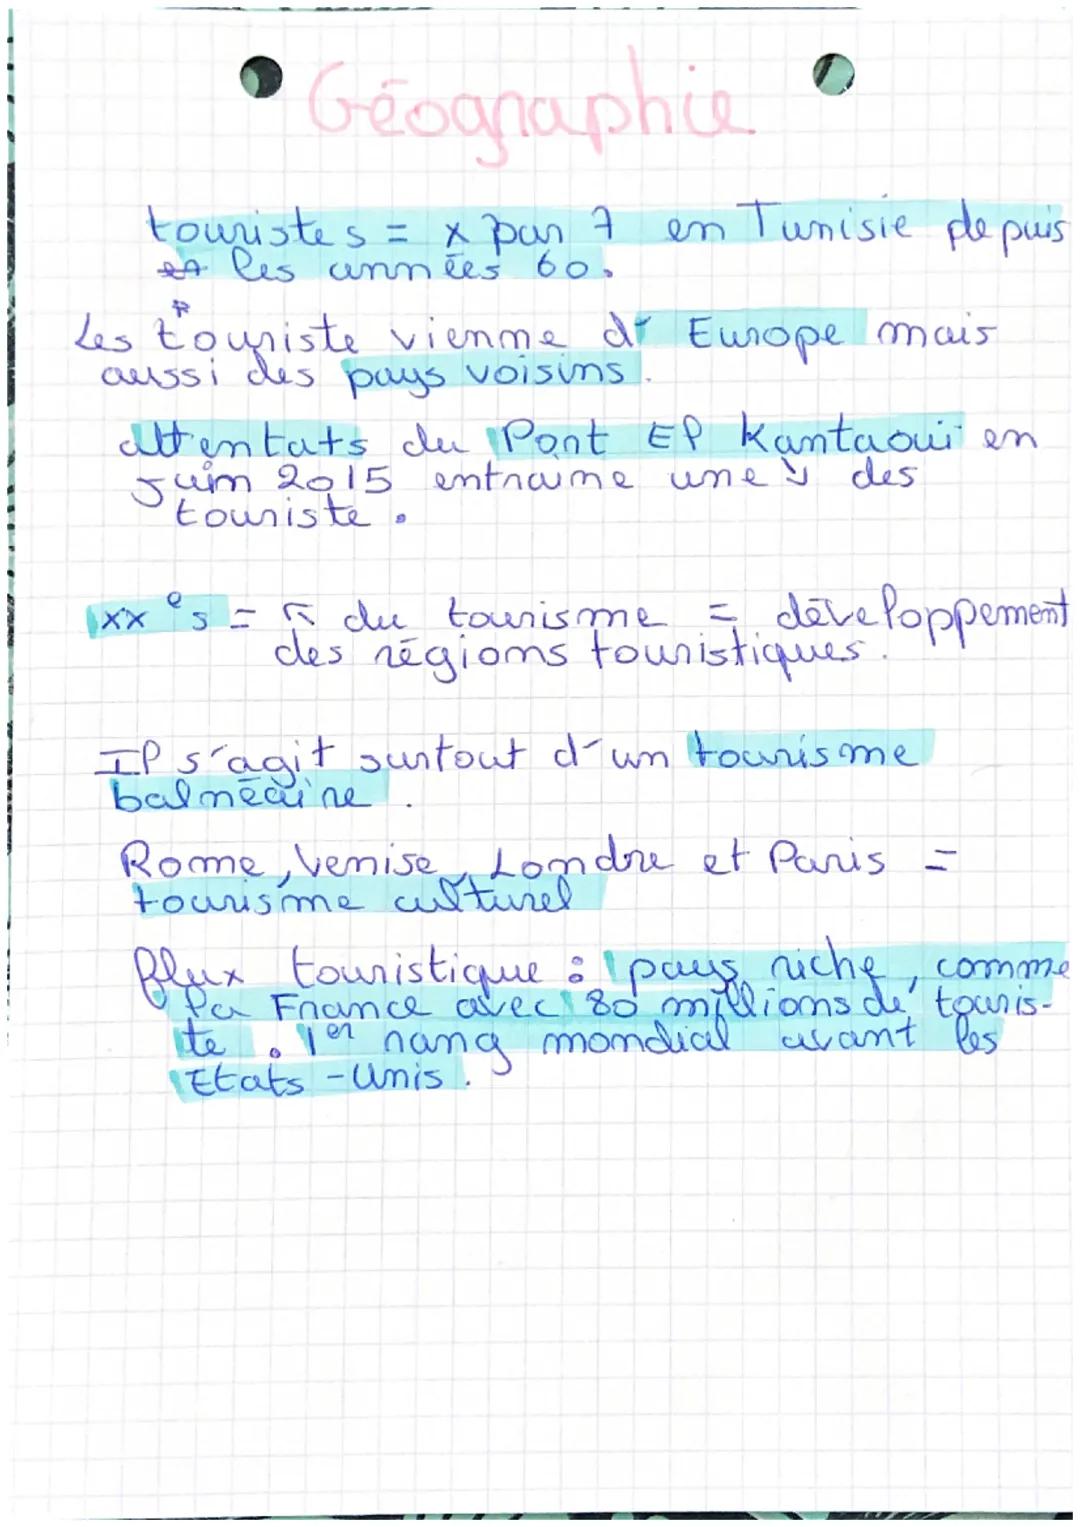 Géographie
touristes = x par 7 en Tunisie depuis
les années 60.
Les touriste vienne d' Europe mais
aussi des pays voisins.
attentats du Port El Kantaoui en
juin 2015 entraine une ↘ des
touriste.
XX e s = ↗ du tourisme = développement
des régions touristiques.
Il s'agit surtout d'un tourisme
balnéaire.
Rome, Venise, Londre et Paris =
tourisme culturel
flux touristique : pays riche, comme
la France avec 80 millions de touris-
te. 1er rang mondial avant les
Etats-Unis.